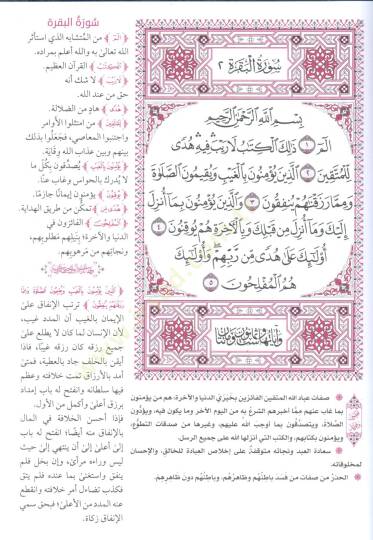 سُورَةُ البقرة
﴿الٓمٓ﴾ من المُتشابه الذي استأثر
الله تعالى به والله أعلم بمراده.
﴿الْكِتَابُ﴾ القرآن العظيم.
﴿لَا رَيْبَ﴾ لا شك أنه
حق من عند الله.
﴿هُدًى﴾ هادٍ من الضلالة.
﴿لِّلْمُتَّقِينَ﴾ من امتثلوا الأوامر
واجتنبوا المعاصي، فجَعَلُوا بذلك
بينهم وبين عذاب الله وِقَايَة.
﴿يُؤْمِنُونَ بِالْغَيْبِ﴾ يُصدِّقون بكُلِّ ما
لا يُدرك بالحواس وغاب عنا.
﴿يُوقِنُونَ﴾ يؤمنون إيمانًا جازمًا.
﴿هُدًى مِّن﴾ تمكُّن من طريق الهداية.
﴿الْمُفْلِحُونَ﴾ الفائزون في
الدنيا والآخرة؛ بِنَيْلِهم مَطلوبهم،
ونجاتهم من مَرهوبِهم.
﴿الَّذِينَ يُؤْمِنُونَ بِالْغَيْبِ وَيُقِيمُونَ الصَّلَاةَ وَمِمَّا
رَزَقْنَاهُمْ يُنفِقُونَ﴾ ترتب الإنفاق على
الإيمان بالغيب أن المدد غيب،
لأن الإنسان لما كان لا يطلع على
جميع رزقه كان رزقه غيبًا، فإذا
أيقن بالخلف جاد بالعطية، فمتى
أمد بالأرزاق تمت خلافته وعظم
فيها سلطانه وانفتح له باب إمداد
برزق أعلى وأكمل من الأول.
فإذا أحسن الخلافة في المال
بالإنفاق منه أيضًا؛ انفتح له باب
إلى أعلى إلى أن ينتهي إلى حيث
ليس وراءه مرأى، وإن بخل فلم
ينفق واستغنى بما عنده فلم يتق
فكذب تضاءل أمر خلافته وانقطع
عنه المدد من الأعلى؛ فبحق سمي
الإنفاق زكاة.
سُورَةُ البَقَرَةِ ٢
بِسْمِ اللَّهِ الرَّحْمَٰنِ الرَّحِيمِ
الٓمٓ ١ ذَٰلِكَ الْكِتَابُ لَا رَيْبَ فِيهِ هُدًى
لِّلْمُتَّقِينَ ٢ الَّذِينَ يُؤْمِنُونَ بِالْغَيْبِ وَيُقِيمُونَ الصَّلَاةَ
وَمِمَّا رَزَقْنَاهُمْ يُنفِقُونَ ٣ وَالَّذِينَ يُؤْمِنُونَ بِمَا أُنزِلَ
إِلَيْكَ وَمَا أُنزِلَ مِن قَبْلِكَ وَبِالْآخِرَةِ هُمْ يُوقِنُونَ ٤
أُولَٰئِكَ عَلَىٰ هُدًى مِّن رَّبِّهِمْ وَأُولَٰئِكَ
هُمُ الْمُفْلِحُونَ ٥
وآياتها مائتان وست وثمانون
صفات عباد الله المتقين الفائزين بخيرَيِ الدنيا والآخرة: هم من يؤمنون
بما غاب عنهم ممَّا أخبرهم الشرعُ به من اليوم الآخر وما يكون فيه، ويؤدُّون
الصَّلاة، ويتصدَّقُون بما أوجب الله عليهم، وغيرها من صدقات التطوُّع،
ويؤمنون بكتابهم، والكتب التي أنزلها الله على جميع الرسل.
سعادة العبد ونجاته متوقفةٌ على إخلاص العبادة للخالق، والإحسان
لمخلوقاته.
الحذرُ من صفات من فسد باطنُهم وظاهرُهم، وباطنُهم دون ظاهرهم.